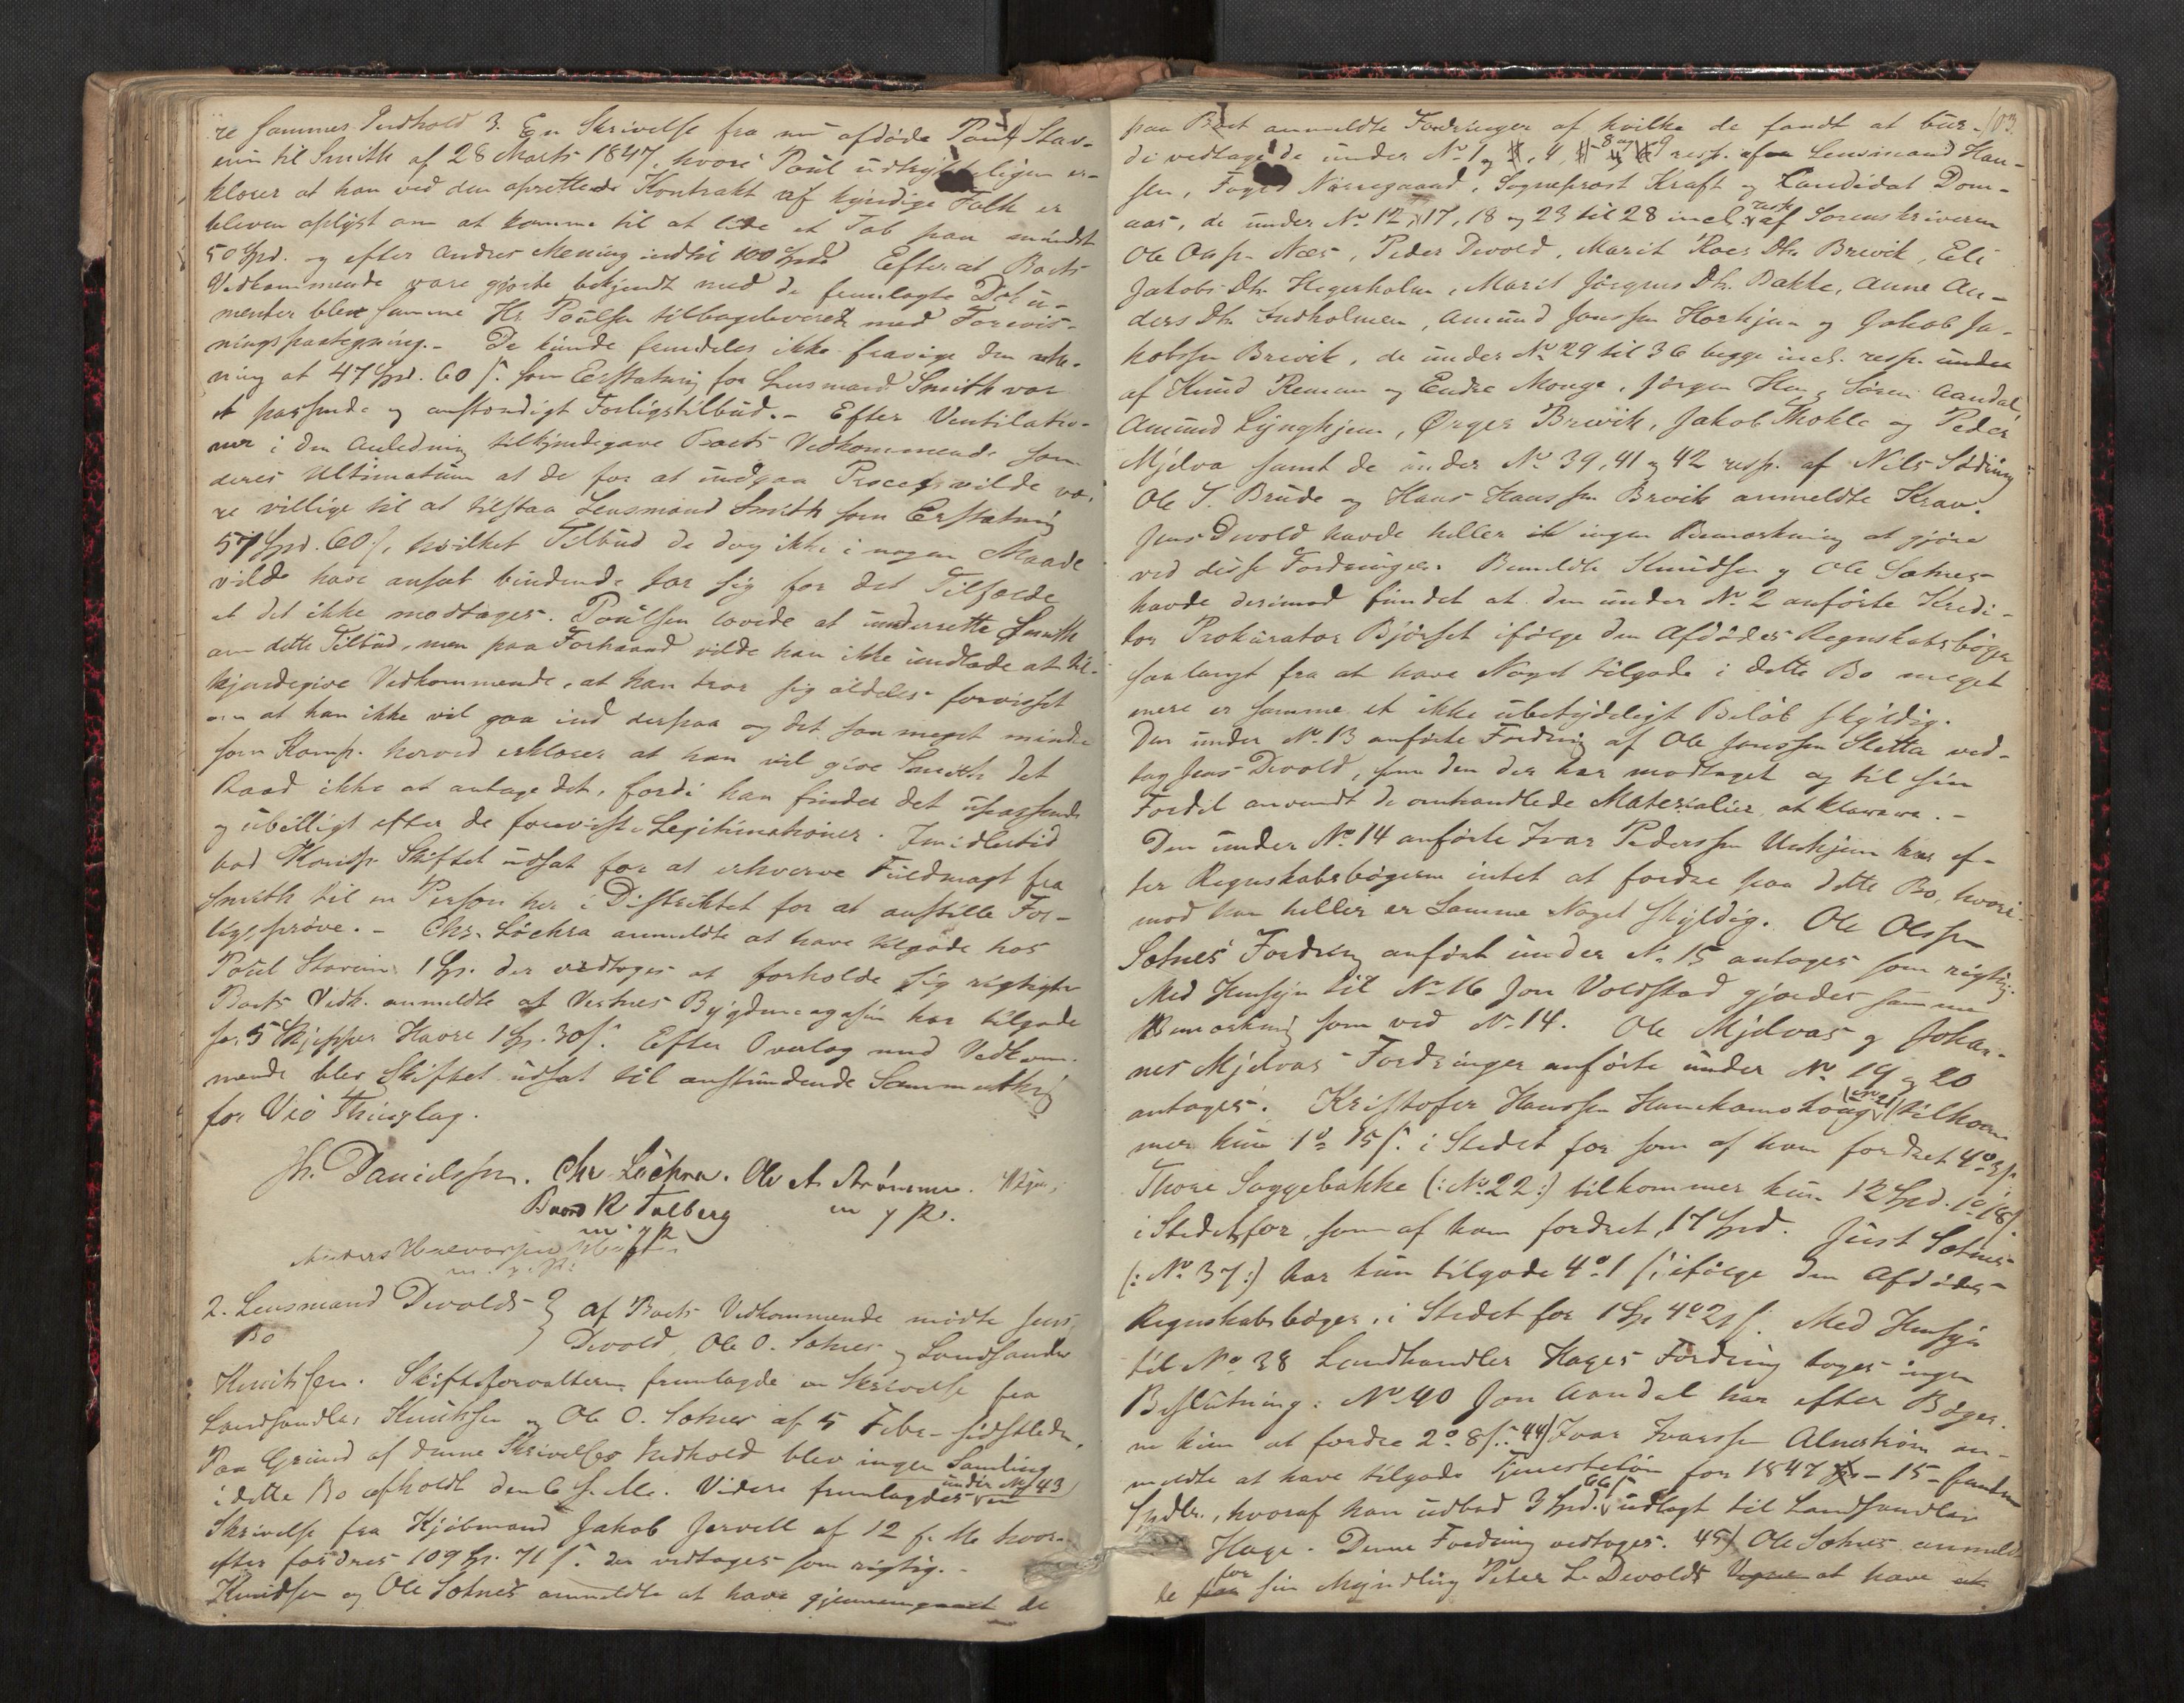 re sammes Indhold 3. En Skrivelse fra nu afdöde Poul Stav-
ein til Smith af 28 Marts 1847, hvori Poul udtrykkeligen er-
klærer at han ved den oprettede Kontrakt af kyndige Folk er
bleven oplyst om at komme til at lide et Tab paa mindst
50 Spd. og efter Andres Mening indtil 100 Spd. Efterat Boets
Vedkommende vare gjorte bekjendt med de fremlagte Doku-
menter blev samme Hr. Poulsen tilbageleveret med Forevis-
ningspaategning. De kunde fremdeles ikke fravige den
ning at 47 Spd. 60 s. som Erstatning for Lensmand Smith var
et passende og anstændigt Forligstilbud. - Efter Ventilatio-
ner i den Anledning tilkjendegave Boets Vedkommende som
deres Ultimatum at de for at undgaa Proces vilde væ-
re villige til at tilstaa Lensmand Smith som Erstatning
57 Spd. 60 s, hvilket Tilbud de dog ikke i nogen Maade
vilde have anseet bindende for sig for det Tilfælde
at det ikke modtages. Poulsen lovede at underrette Smith
om dette Tilbud, men paa Forhaand vilde han ikke undlade at til-
kjendegive Vedkommende, at han tror sig aldeles forvisset
om at han ikke vil gaa ind derpaa og det saa meget mindre
som Komp. herved erklærer at han vil give Smith det
Raad ikke at antage det, fordi han finder det upassende
og ubilligt efter de foreviste Legitimationer. Imidlertid
bad Komp. Skiftet udsat for at erhverve Fuldmagt fra
Smith til en Person her i Distriktet for at anstille For-
ligsprøve. - Chr. Löchra anmeldte at have tilgode hos
Poul Stavein 1 Sp. der vedtoges at forholde sig rigtigt.
Boets Vedk. anmeldte at Vestnes Bygdemagasin har tilgode
for 5 Skjepper Havre 1 Sp. 30 s. Efter Overlæg med Vedkom-
mende blev Skiftet udsat til anstundende Sommerthing
for Veö Thinglag.
Danielssen. Chr Löchra. Ole A. Strömme.
Baard R Talberg m p R.
m p R
Anders
m. p. R.
2. Lensmand Devolds } Af Boets Vedkommende mödte Jens
Bo } Devold, Ole O. Sotnes og Landhandler
Knudssen. Skifteforvalteren fremlagde en Skrivelse fra
Landhandler Knudssen og Ole O. Sotnes af 5 Febr. sidstleden.
Paa Grund af denne Skrivelses Indhold blev ingen Samling
i dette Bo afholdt den 6 s. M. Videre fremlagdes under No 43 en
Skrivelse fra Kjöbmand Jakob Jervell af 12 f. M. hvor-
efter fordres 109 Sp. 71 s. der vedtoges som rigtig. -
Knudssen og Ole Sotnes anmeldte at have gjennemgaaet de
103.
paa Boet anmeldte Fordringer af hvilke de fandt at bur-
de vedtages de under No 1, 4, 8 og 9 resp. af Lensmand Han-
sen, Foged Nörregaard, Sogneprost Kraft og Candidat Dom-
aas, de under No 12, 17, 18 og 23 til 28 incl. resp. af Sorenskriveren
Ole Næs, Peder Devold, Marit Roes Dtr Brevik, Eli
Jakobs Dtr. Hegerholm, Marit Jörgens Dtr. Bakke, Anne An-
ders Dtr Indholmen, Amund Jonssen Horhjem og Jakob Ja-
kobssen Brevik, de under No 29 til 36 begge incl. resp. under
af Knud Reman og Endre Monge, Jörgen Hen og Sören Aandal,
Amund Lÿnghjem, Örger Brevik, Jakob Thokle og Peder
Mjelva samt de under No 39, 41 og 42 resp. af Nils Söding
Ole T. Brude og Hans Hanssen Brevik anmeldte Krav.
Jens Devold havde heller ik ingen Bemærkning at gjöre
ved disse Fordringer. Bemeldte Knudsen og Ole Sotnes
havde derimod fundet at den under No 2 anförte Kredi-
tor Prokurator Björset ifölge den Afdödes Regnskabsböger
saa langt fra at have Noget tilgode i dette Bo meget
mere er samme et ikke ubetydeligt Belöb skyldig.
Den under No 13 anförte Fordring af Ole Jonssen Sletta ved-
tog Jens Devold, som den der har modtaget og til sin
Fordel anvendt de omhandlede Materialier at klarere. -
Den under No 14 anförte Ivar Pederssen Unhjem har ef-
ter Regnskabsbögerne intet at fordre paa dette Bo, hvori-
mod han heller er samme Noget skyldig. Ole Olssen
Sotnes' Fordring anfört under No 15 antoges som rigtig.
Med Hensyn til No 16 Jon Voldstad gjordes samme
Bemærkning som ved No 14. Ole Mjelvas og Johan-
nes Mjelvas Fordringer anförte under No 19 og 20
antoges. Kristofer Hanssen Hanekamhaug (No 21) tilkom-
mer kun 1 o 15 s. i Stedet for som af ham fordret 4 o 3 s.
Thore Soggebakke (: No 22 :) tilkommer kun 12 Spd. 1 o 18 s.
i Stedet for, som af ham fordret, 17 Spd. Just Sotnes
(: No 37 :) har kun tilgode 4 o 1 s. ifölge den Afdödes
Regnskabsböger, i Stedet for 1 Sp 4 o 21 s. Med Hensyn
til No 38 Landhandler Hages Fordring toges ingen
Beslutning: No 40 Jon Aandal har efter Böger-
ne kun at fordre 2 o 8 s. 44) Ivar Ivarssen Alnestrøm an-
meldte at have tilgode Tjenestelön for 1847 - 15 - femten
Spdlr., hvoraf han udbad 3 Spd. 66 s udlagt til Landhandler
Hage. Denne Fordring vedtoges. 45) Ole Sotnes anmeld-
te for sin Myndling Peter L. Devolds at have